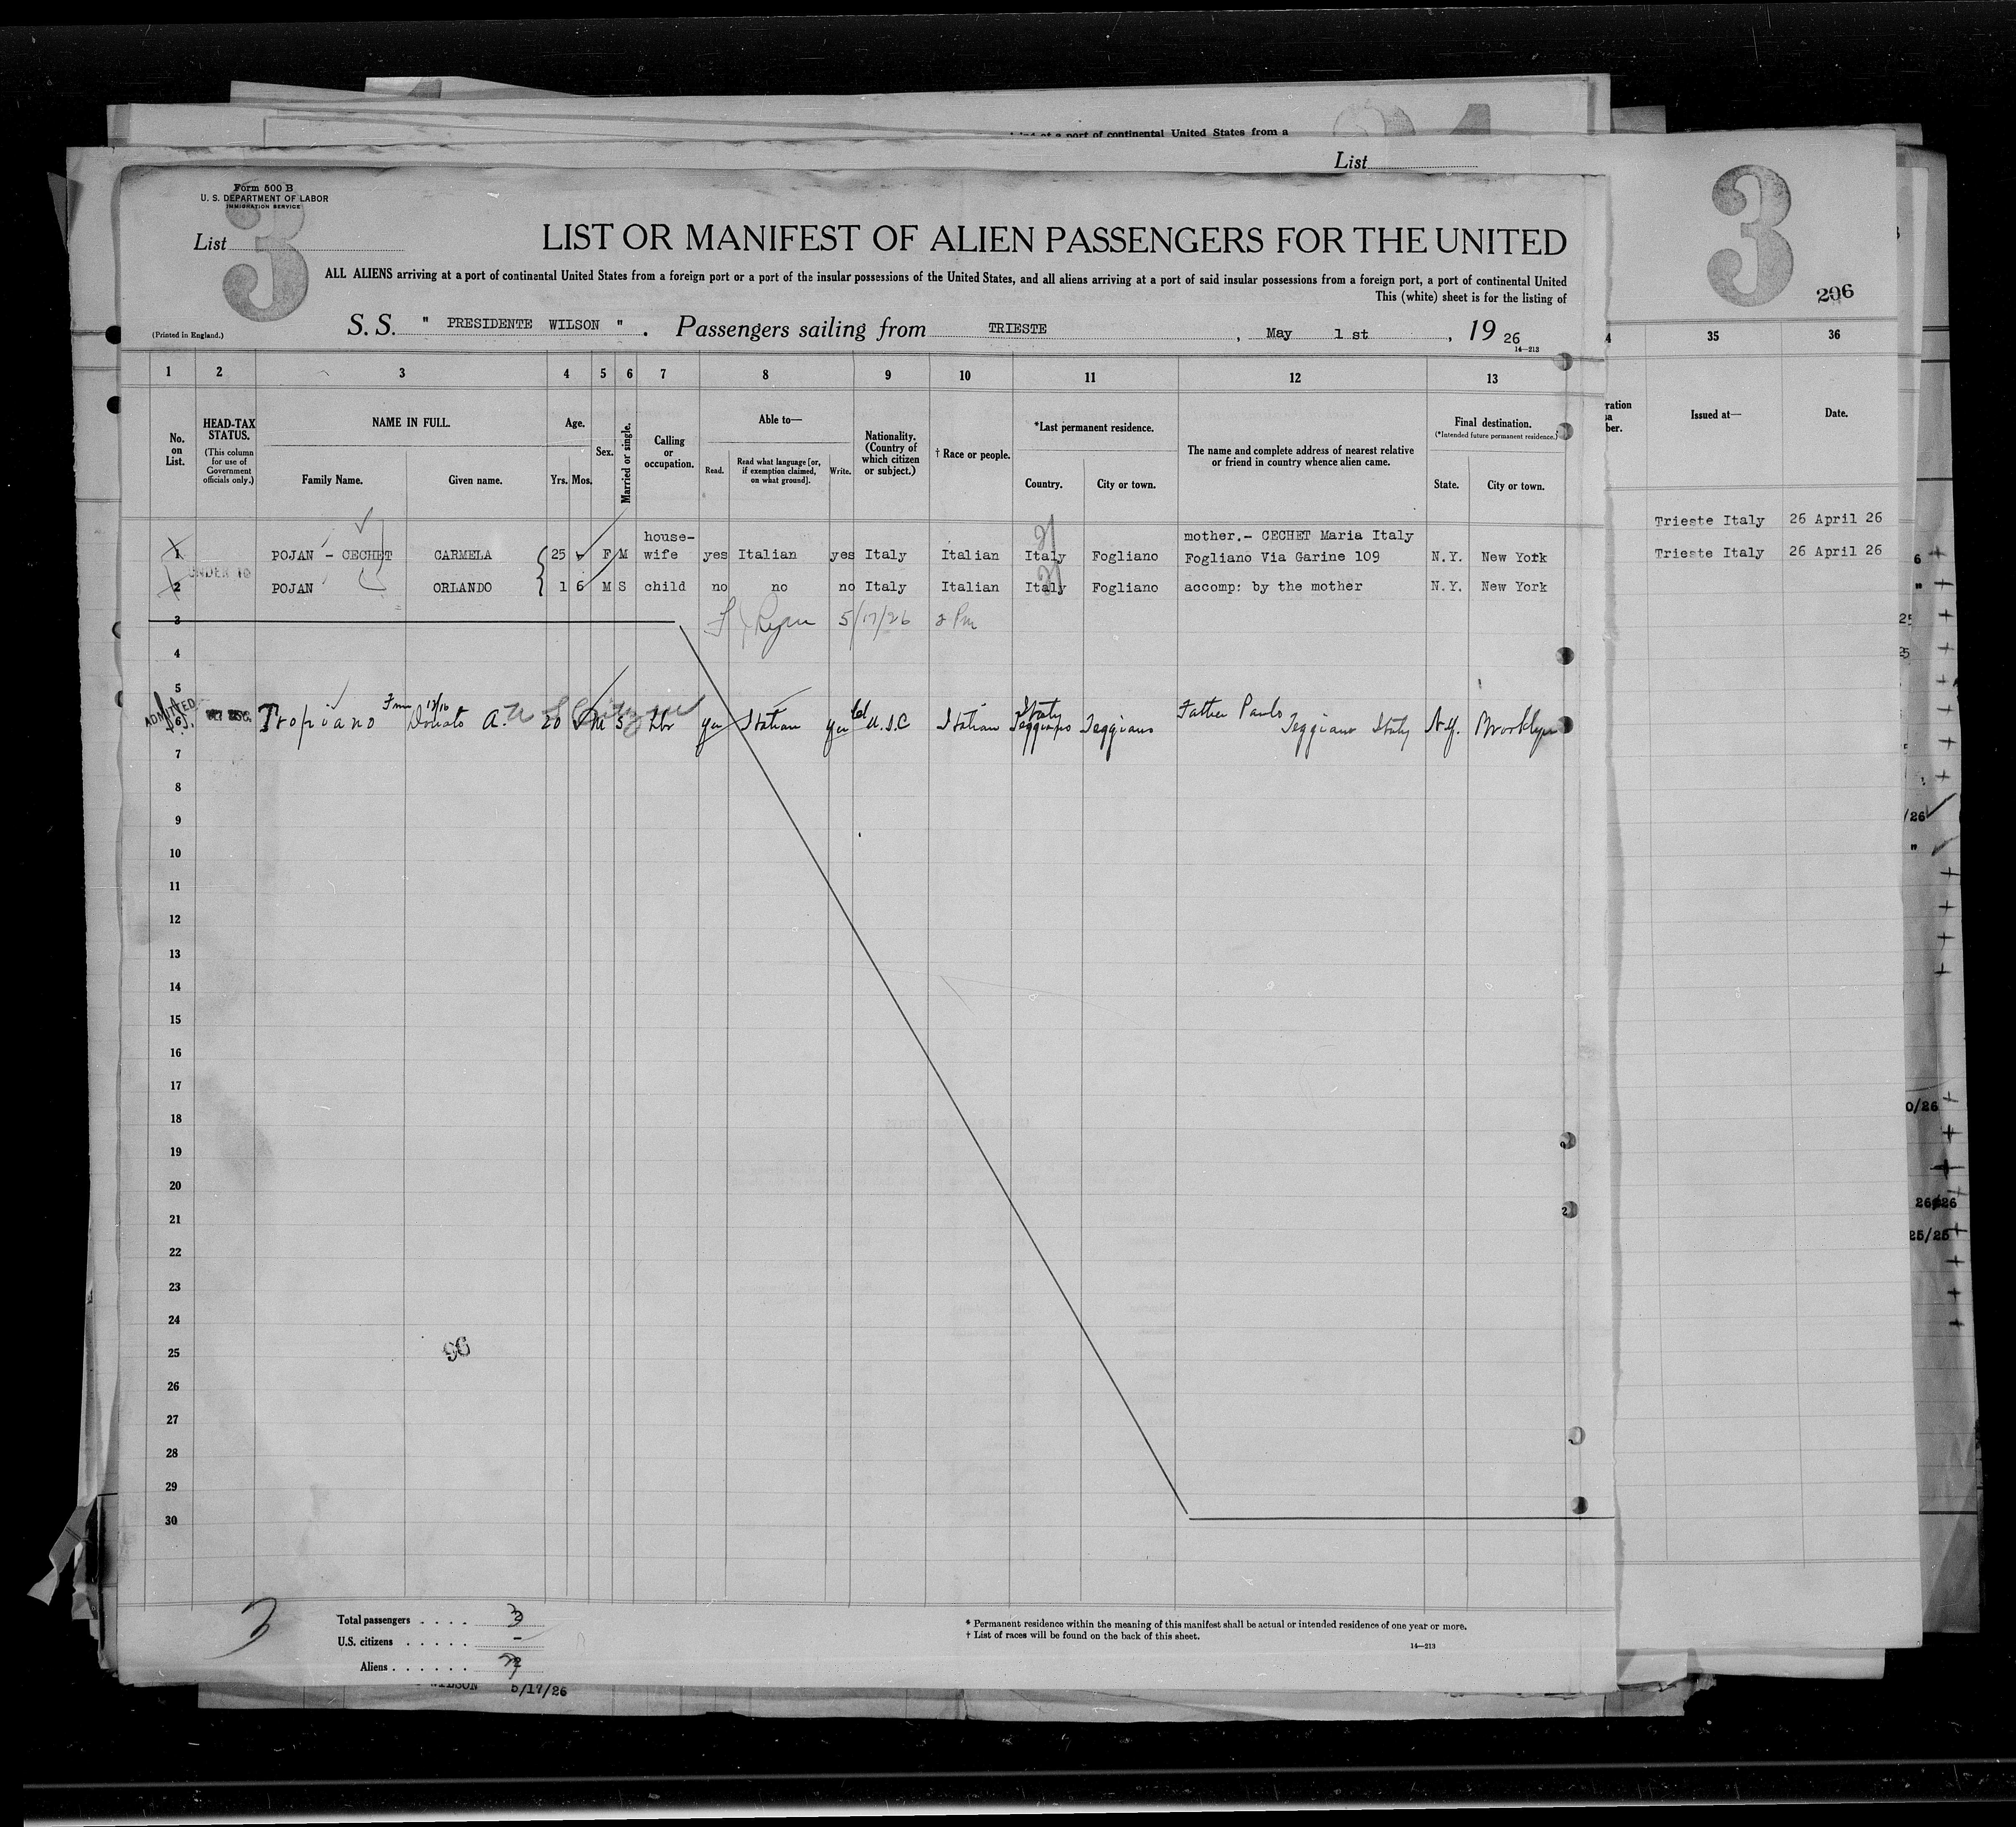 continental United States from a
List
Form 500 B
U. S. DEPARTMENT OF LABOR
IMMIGRATION SERVICE
List
3
3
206
LIST OR MANIFEST OF ALIEN PASSENGERS FOR THE UNITED
ALL ALIENS arriving at a port of continental United States from a foreign port or a port of the insular possessions of the United States, and all aliens arriving at a port of said insular possessions from a foreign port, a port of continental United
This (white) sheet is for the listing of
(Printed in England.)
S. S. " PRESIDENTE WILSON " . Passengers sailing from TRIESTE , May 1 st , 19 26
14—213
1 2 3 4 5 6 7 8 9 10 11 12 13 35 36
No. on List.
HEAD-TAX STATUS.
(This column for use of Government officials only.)
NAME IN FULL.
Family Name. Given name.
Age.
Yrs. Mos.
Sex.
Married or single.
Calling or occupation.
Able to—
Read. Read what language [or, if exemption claimed, on what ground]. Write.
Nationality. (Country of which citizen or subject.)
† Race or people.
*Last permanent residence.
Country. City or town.
The name and complete address of nearest relative or friend in country whence alien came.
Final destination.
(*Intended future permanent residence.)
State. City or town.
Issued at— Date.
1 POJAN - CECHET CARMELA 25 F M house-wife yes Italian yes Italy Italian Italy Fogliano mother.- CECHET Maria Italy Fogliano Via Garine 109 N.Y. New York
Trieste Italy 26 April 26
UNDER 16
2 POJAN ORLANDO 1 6 M S child no no no Italy Italian Italy Fogliano accomp: by the mother N.Y. New York
Trieste Italy 26 April 26
3 5/17/26 2 Pm
4
5
ADMITTED
6 Tropiano Donato A. 20 M S Lbr yes Italian yes U.S.C Italian Italy Teggiano Teggiano Father Paulo Teggiano Italy N.Y. Brooklyn
7
8
9
10
11
12
13
14
15
16
17
18
19
20
21
22
23
24
25
26
27
28
29
30
96
3
Total passengers . . . . 3
U.S. citizens . . . . . -
Aliens . . . . . .
* Permanent residence within the meaning of this manifest shall be actual or intended residence of one year or more.
† List of races will be found on the back of this sheet.
14—213
WILSON 5/17/26